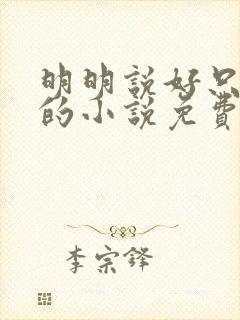 明明説好只
的小説免費
李宗鋒